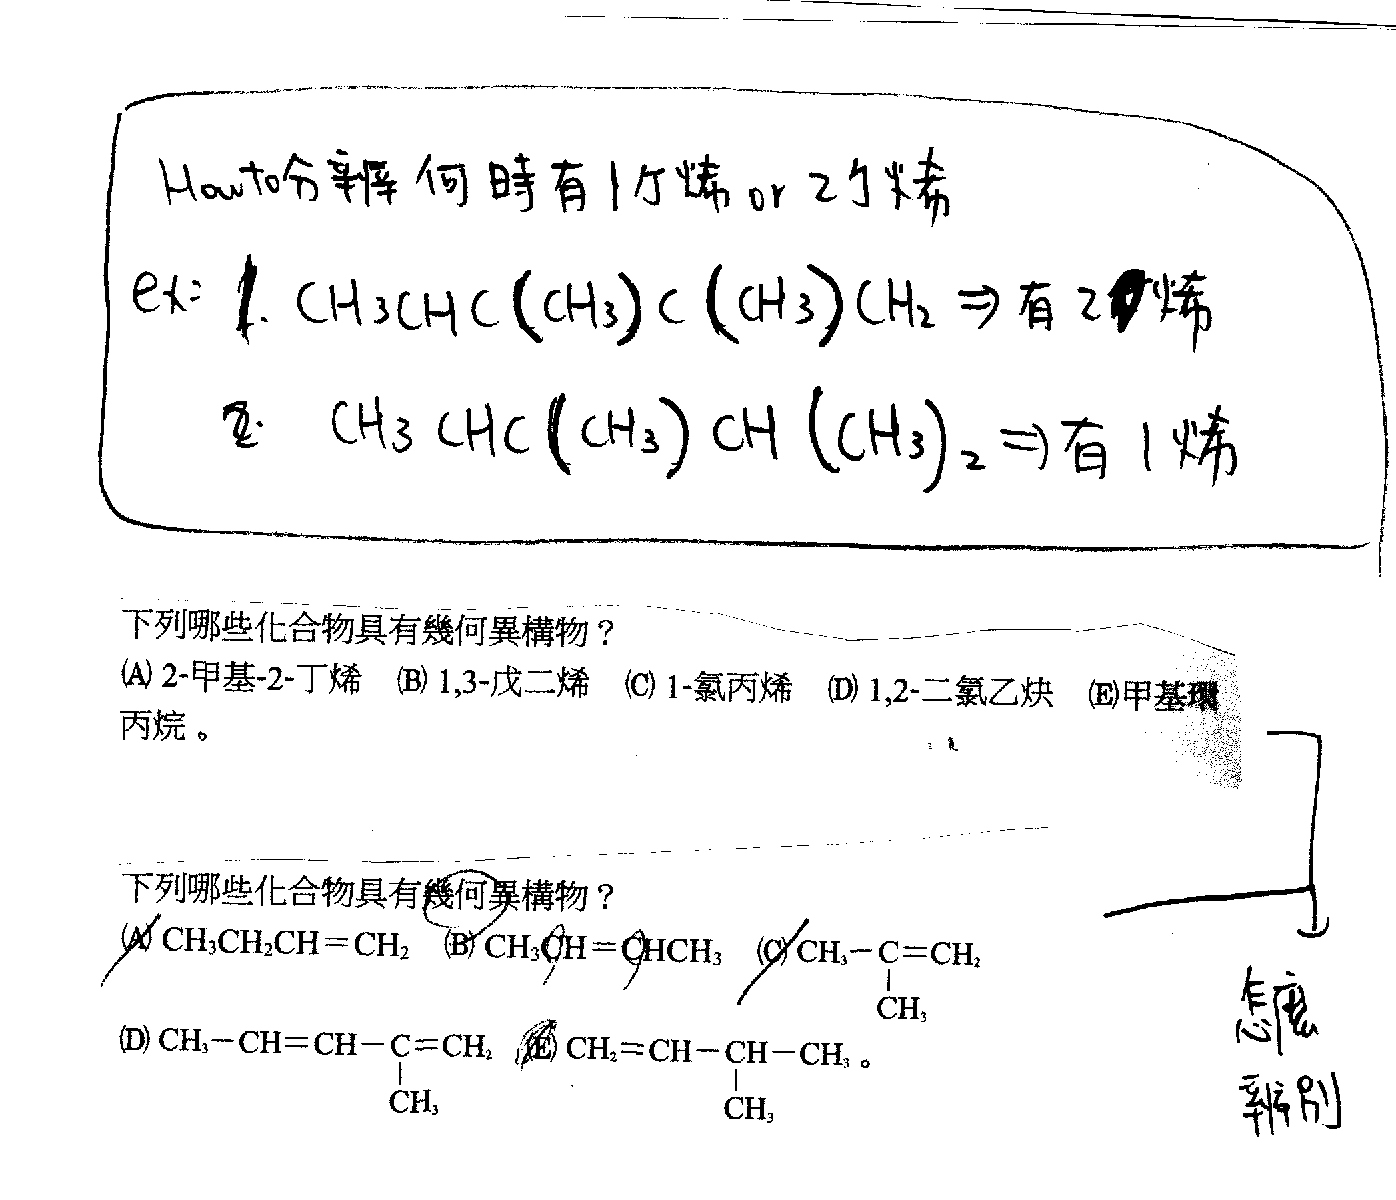 How to 分辨何時有1个烯 or 2个烯
ex: 1. CH3CHC(CH3)C(CH3)CH2 ⇒ 有2烯
2. CH3CHC(CH3)CH(CH3)2 ⇒ 有1烯
下列哪些化合物具有幾何異構物？
(A) 2-甲基-2-丁烯 (B) 1,3-戊二烯 (C) 1-氯丙烯 (D) 1,2-二氯乙炔 (E)甲基環
丙烷。
下列哪些化合物具有幾何異構物？
(A) CH₃CH₂CH＝CH₂ (B) CH₃CH＝CHCH₃ (C) CH₃－C＝CH₂
CH₃
(D) CH₃－CH＝CH－C＝CH₂ (E) CH₂＝CH－CH－CH₃。
CH₃ CH₃
怎麼
辨別